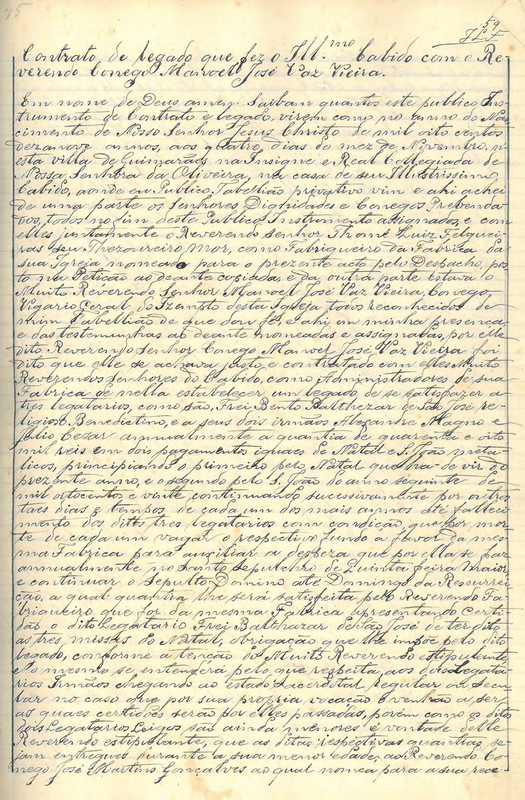 59
J L F
Contrato de legado que fez o Ill.mo Cabido com o Re-
verendo Conego Manoel José Vaz Vieira.
Em nome de Deus amen. Saibam quantos este publico Ins-
trumento de Contrato e legado, virem como no anno do Nas-
cimento de Nosso Senhor Jesus Christo de mil oito centos
dezanove annos, aos quatro dias do mez de Novembro, n'
esta villa de Guimarães na Insigne e Real Collegiada de
Nossa Senhora da Oliveira, na casa de seu Illustrissimo
Cabido, aonde eu Publico Tabellião privativo vim e ahi achei
de uma parte os Senhores Dignidades e Conegos Prebenda-
dos, todos no fim deste Publico Instrumento assignados, e com
elles juntamente o Reverendo Senhor Thomé Luiz Felguei-
ras seu Thezoureiro Mor, como Fabriqueiro da Fabrica da
sua Igreja nomeado para o prezente acto pelo Despacho, pos-
to na Petição ao deante copiada e da outra parte estava o
Muito Reverendo Senhor Manoel José Vaz Vieira, Conego
Vigario Geral do Izempto desta Igreja todos reconhecidos de
mim Tabellião de que dou fé. E ahi em minha presença
e das testemunhas ao deante nomeadas e assignadas, por elle
dito Reverendo Senhor Conego Manoel José Vaz Vieira foi
dito que elle se achava justo e contratado com elles Muito
Reverendos Senhores do Cabido, como Administradores de sua
Fabrica de nella estabelecer um legado de se satisfazer a
tres legatarios, como são, Frei Bento Balthezar de São José re-
ligioso Benedictino, e a seus dois irmãos Alexandre Magno e
Julio Cesar annualmente a quantia de quarenta e oito
mil reis em dois pagamentos iguaes do Natal e S. João meta-
licos, principiando o primeiro pelo Natal que ha-de vir do
prezente anno, e o segundo pelo S. João do anno seguinte de
mil oitocentos e vinte continuando successivamente por outros
taes dias e tempos de cada um dos mais annos até falleci-
mento dos ditos tres legatarios com condição, que por mor-
te de cada um vagará o respectivo fundo a favor da mes-
ma Fabrica para auxiliar a despeza que por ella se faz
annualmente no Santo Sepulchro de Quinta feira Maior
e continuar o Sepulto Domino até Domingo da Ressurrei-
ção, a qual quantia lhe será satisfeita pelo Reverendo Fa-
briqueiro que for da mesma Fabrica apresentando Certi-
dão o dito Legatario Frei Balthazar de São José de ter dito
as tres missas do Natal, obrigação que lhe impõe pelo dito
legado, conforme a tenção do Muito Reverendo estipulante
e o mesmo se entenderá pelo que respeita, aos dois legata-
rios Irmãos chegando ao estado Sacerdotal regular ou Secu-
lar no caso que por sua propria vocação o venham a ser,
as quaes certidões serão por elles passadas, porém como os ditos
dois Legatarios Leigos são ainda menores é vontade delle
Reverendo estipulante, que as ditas respectivas quantias se-
jam entregues durante a sua menoridade, ao Reverendo Co-
nego José Martins Gonçalves ao qual nomea para a sua rece-